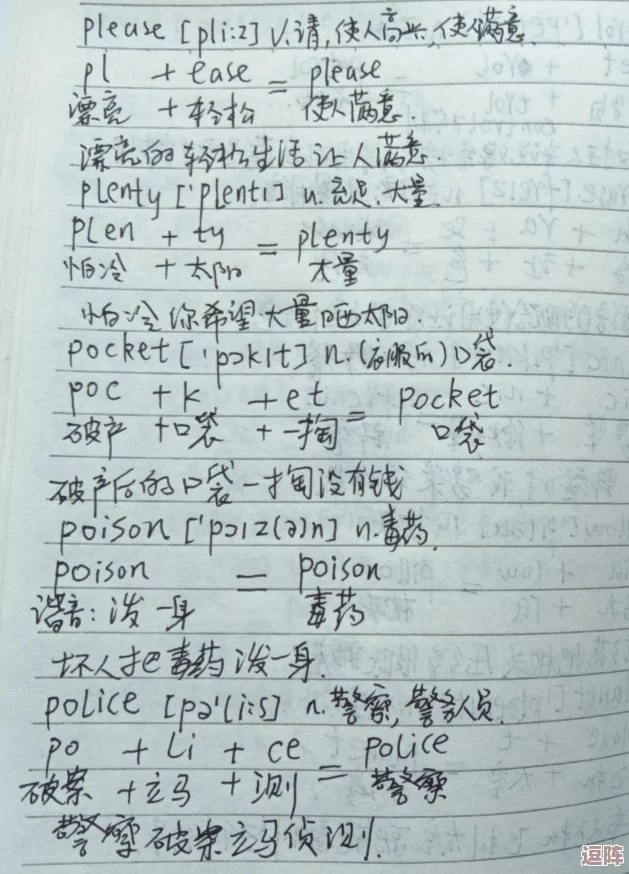 please [pli:z] v.请,使人高兴,使满意.
pl + ease = please
漂亮 + 轻松 使人满意.
漂亮的轻松生活让人满意.
plenty ['plentɪ] n.充足,大量
plen + ty = plenty
怕冷 + 太阳 大量
怕冷你希望大量晒太阳.
pocket ['pɔkɪt] n.(衣服的)口袋.
poc + k + et = pocket
破产 + 口袋 + 一掏 口袋
破产后的口袋一掏没有钱
poison ['pɔɪz(ə)n] n.毒药.
poison = poison
谐音:泼一身 毒药
坏人把毒药泼一身.
police [pə'li:s] n.警察,警务人员.
po + li + ce = police
破案 + 立马 + 测 警察
警察破案立马侦测.
逗阵